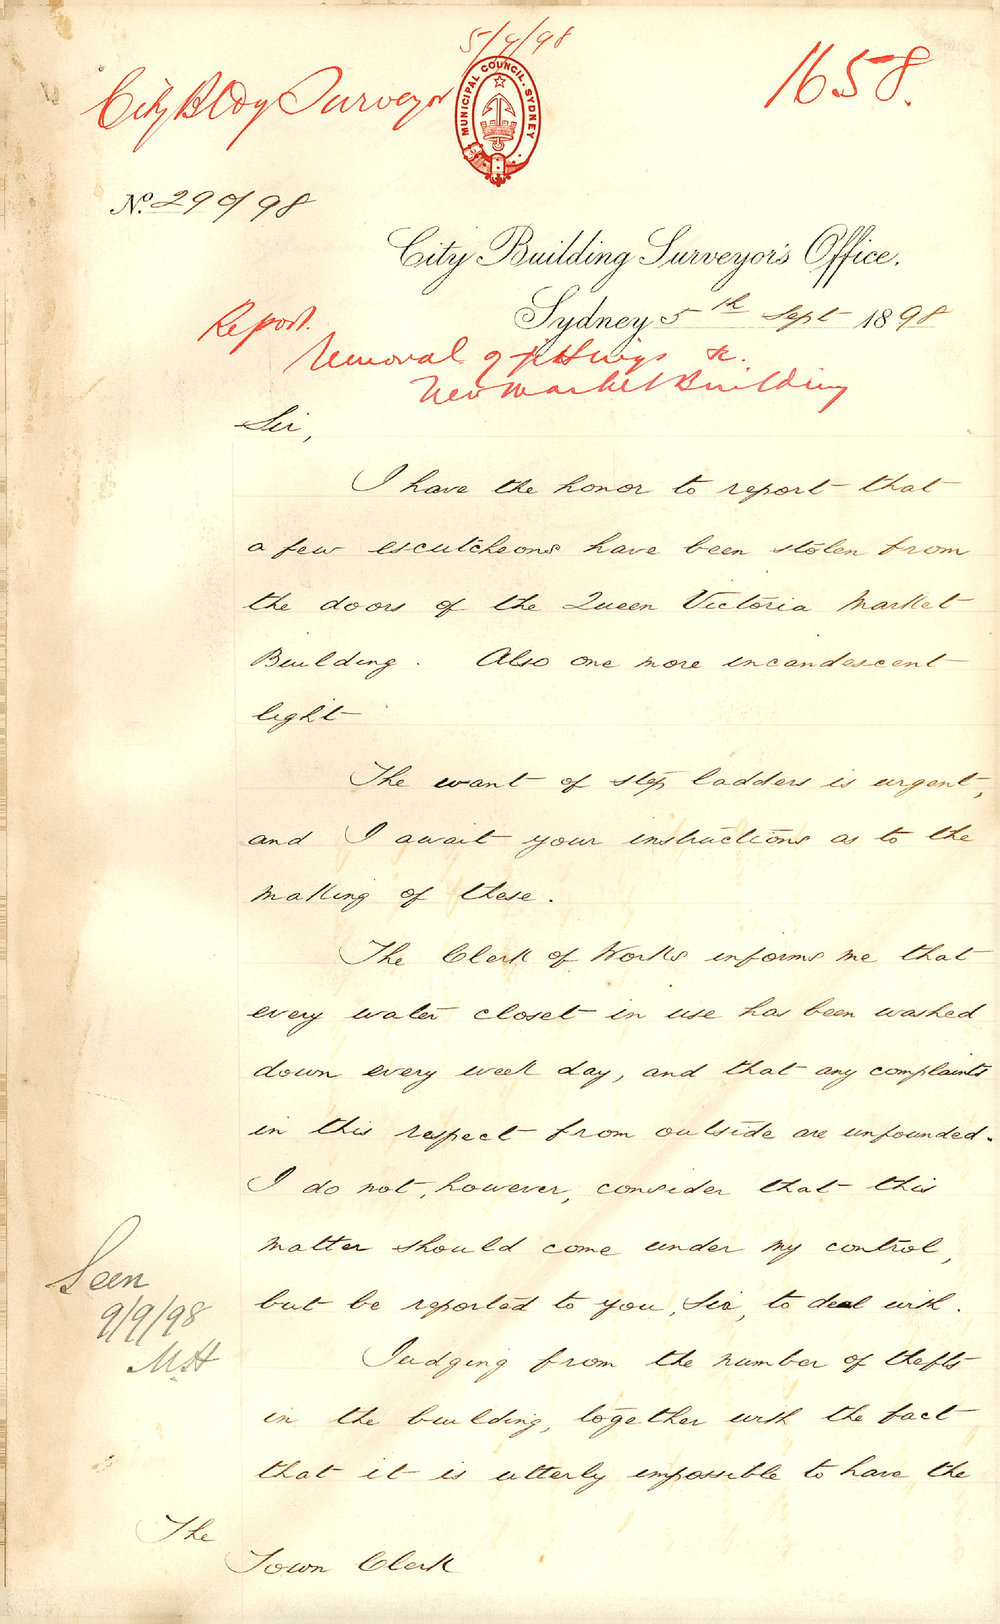 5/9/98
City Bldg Surveyor
1658.
MUNICIPAL COUNCIL. SYDNEY
No. 290/98
City Building Surveyor's Office.
Sydney 5th Sept 1898
Report.
Removal of fittings &c.
New Market Building
Sir,
I have the honor to report that
a few escutcheons have been stolen from
the doors of the Queen Victoria Market
Building. Also one more incandescent
light
The want of step ladders is urgent,
and I await your instructions as to the
making of these.
The Clerk of Works informs me that
every water closet in use has been washed
down every week day, and that any complaints
in this respect from outside are unfounded.
I do not, however, consider that this
matter should come under my control,
but be reported to you, Sir, to deal with.
Judging from the number of thefts
in the building, together with the fact
that it is utterly impossible to have the
Seen
9/9/98
MH
The
Town Clerk